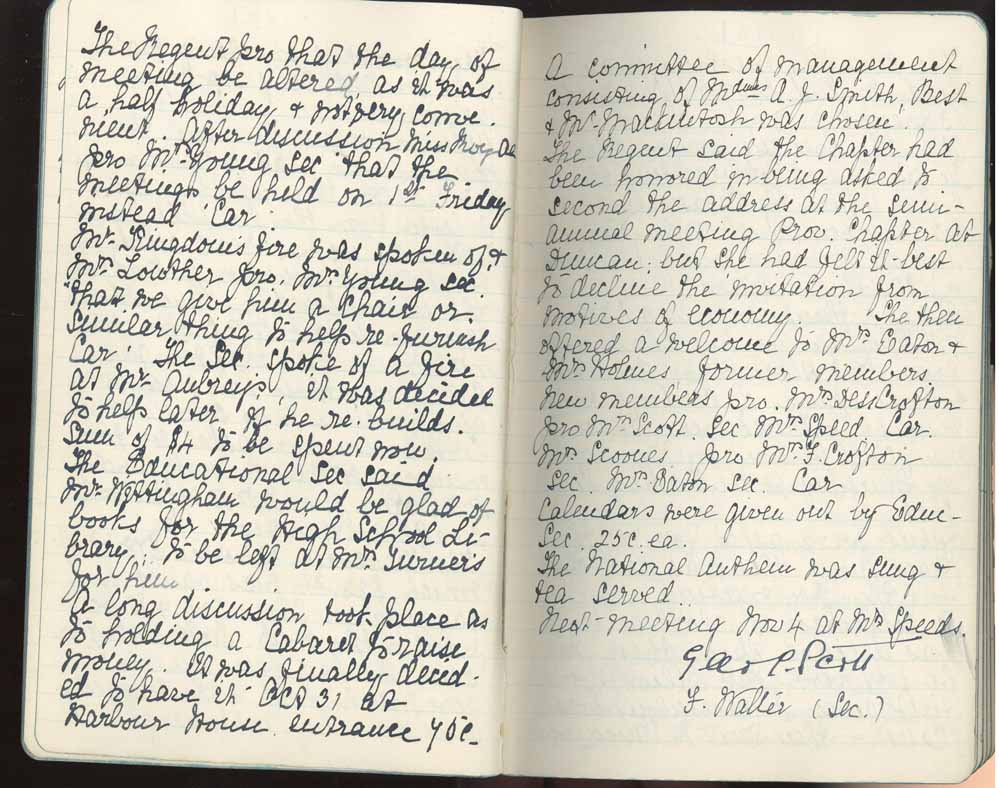 The Regent pro that the day of
meeting be altered, as it was
a half holiday & not very conve-
nient. After discussion Miss
pro Mrs Young sec that the
meetings be held on 1st Friday
instead Car.
Mr. Kingdom's fire was spoken of &
Mrs Lowther pro. Mrs Young sec.
that we give him a Chair or
similar thing to help re-furnish
Car. The Sec. spoke of a fire
at Mr Aubreys, it was decided
to help later if he re-builds.
Sum of $4 to be spent now
The Educational Sec said
Mr. Nottingham would be glad of
books for the High School Li-
brary. To be left at Mrs. Turners
for him
A long discussion took place as
to holding a Cabaret to raise
money. It was finally decid-
ed to have it Oct 31 at
Harbour House. entrance 75c.
A committee of management
consisting of Mdmes A. J. Smith, Best
& Mrs Mackintosh was chosen.
The Regent said the Chapter had
been honored in being asked to
second the address at the semi-
annual meeting Prov. Chapter at
Duncan. but she had felt it best
to decline the invitation from
motives of economy. She then
offered a welcome to Mrs Eaton &
Mrs Holmes former members.
New members pro. Mrs Des Crofton
pro Mrs Scott. sec Mrs Speed Car.
Mrs Scoones pro Mrs F. Crofton
sec. Mrs Eaton sec. Car
Calendars were given out by Educ-
Sec. 25c. ea.
The National Anthem was sung &
tea served.
Next meeting Nov 4 at Mrs Speeds.
Scott
F. Walter (Sec.)